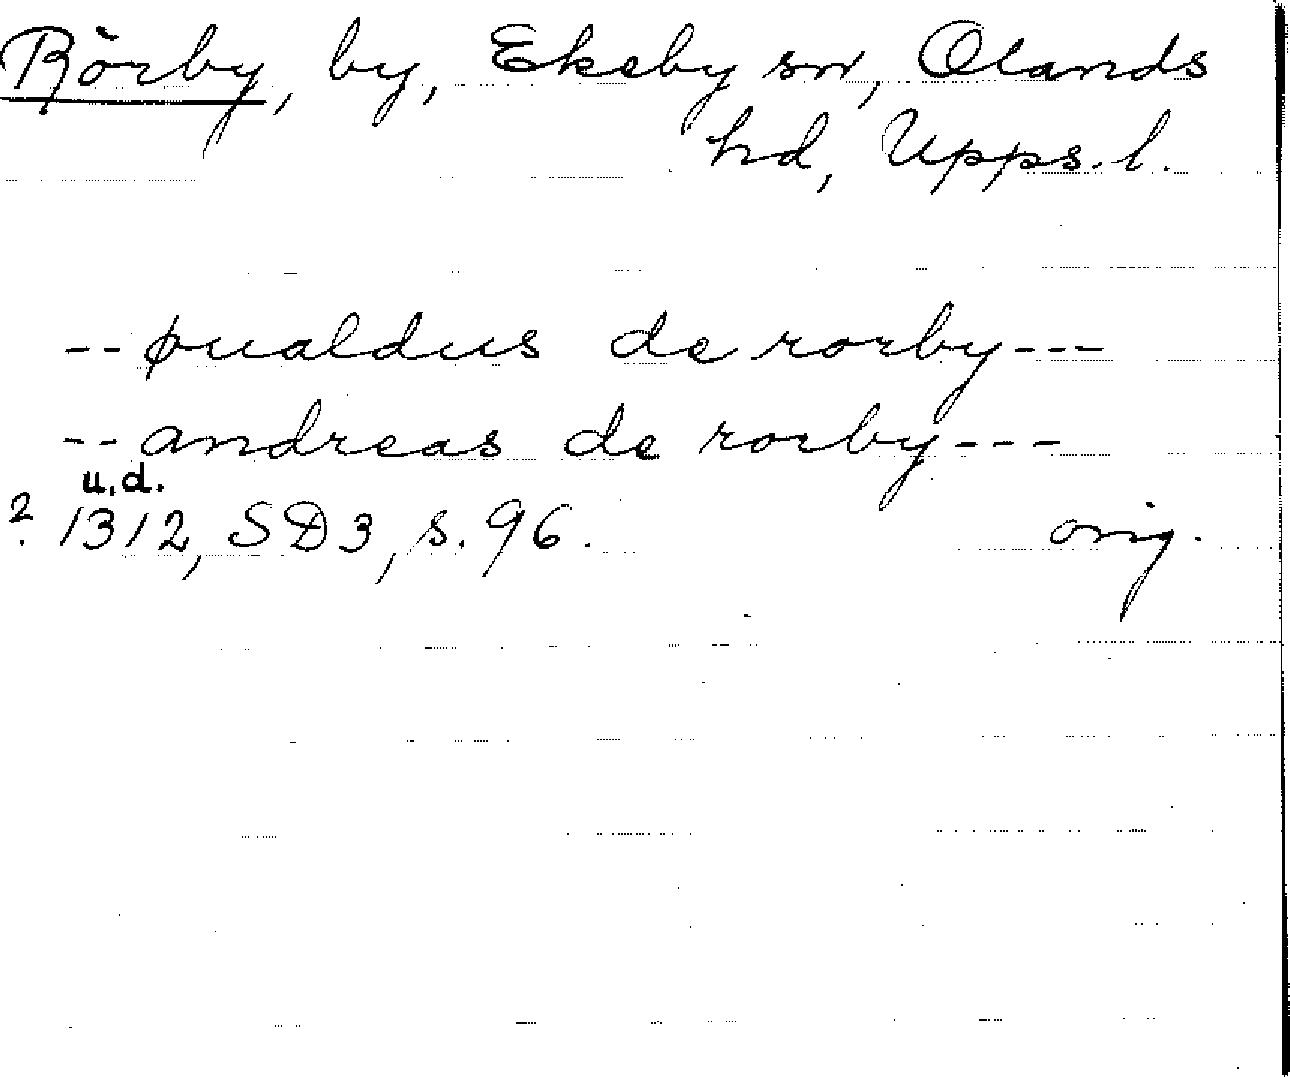 Rörby, by, Ekeby sn, Olands
hd, Upps. l.
-- þualdus de rorby ---
-- andreas de rorby ---
u.d.
? 1312, SD3, s. 96. orig.